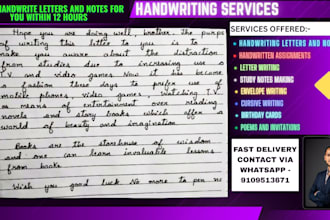 HANDWRITE LETTERS AND NOTES FOR
YOU WITHIN 12 HOURS
HANDWRITING SERVICES
Hope you are doing well brother the purpose
of writing this letter to you is to
make you aware about the distraction
from studies due to increasing use of
T.V and video games. Now it has become
a fashion these days to prefer use of
mobile phones, video games, watching T.V
as means of entertainment over reading
novels and story books which offer a
world of beauty and imagination.
Books are the storehouse of wisdom
and one can learn invaluable lessons
from books.
Wish you good luck. No more to pen now
SERVICES OFFERED:-
HANDWRITING LETTERS AND NO
HANDWRITTEN ASSIGNMENTS
LETTER WRITING
STUDY NOTES MAKING
ENVELOPE WRITING
CURSIVE WRITING
BIRTHDAY CARDS
POEMS AND INVITATIONS
FAST DELIVERY
CONTACT VIA
WHATSAPP -
9109513671